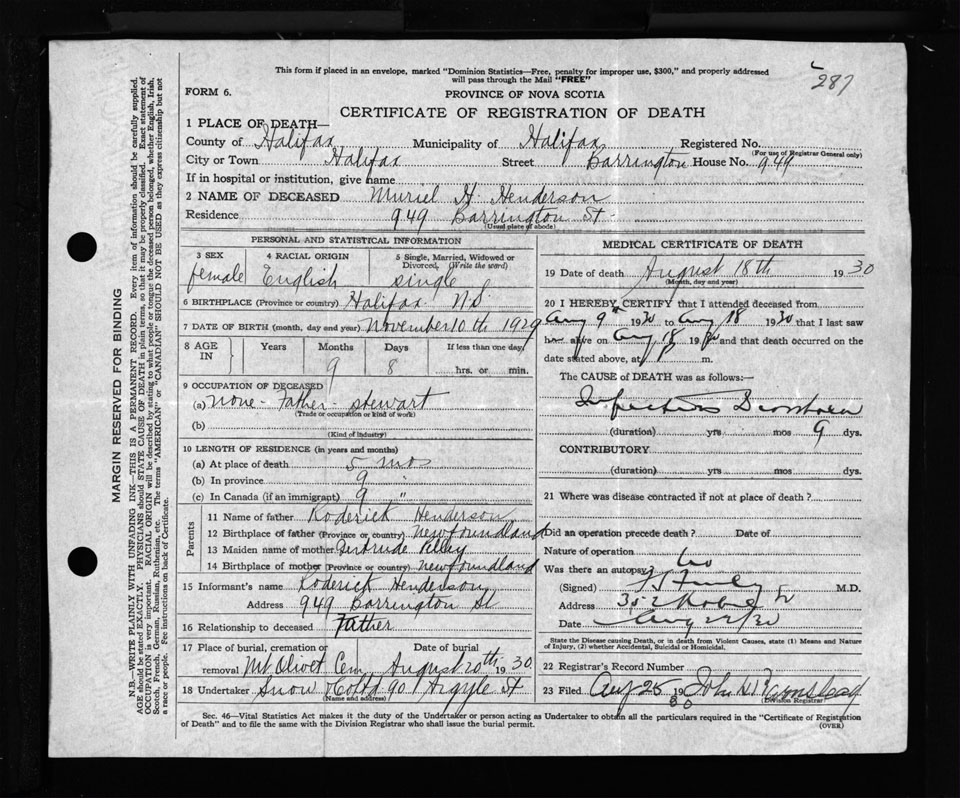 287
This form if placed in an envelope, marked "Dominion Statistics—Free, penalty for improper use, $300," and properly addressed
will pass through the Mail "FREE"
FORM 6.
PROVINCE OF NOVA SCOTIA
CERTIFICATE OF REGISTRATION OF DEATH
1 PLACE OF DEATH—
County of Halifax Municipality of Halifax Registered No.
(For use of Registrar General only)
City or Town Halifax Street Barrington House No. 949
If in hospital or institution, give name
2 NAME OF DECEASED Muriel H. Henderson
Residence 949 Barrington St.
(Usual place of abode)
PERSONAL AND STATISTICAL INFORMATION
3 SEX 4 RACIAL ORIGIN 5 Single, Married, Widowed or
Divorced, (Write the word)
female English single
6 BIRTHPLACE (Province or country) Halifax N.S
7 DATE OF BIRTH (month, day and year) November 10th 1929
8 AGE IN Years Months Days If less than one day,
9 8 hrs. or min.
9 OCCUPATION OF DECEASED
(a) none - Father - stewart
(Trade or occupation or kind of work)
(b)
(Kind of industry)
10 LENGTH OF RESIDENCE (in years and months)
(a) At place of death 5 mos
(b) In province 9 "
(c) In Canada (if an immigrant) 9 "
Parents
11 Name of father Roderick Henderson
12 Birthplace of father (Province or country) Newfoundland
13 Maiden name of mother Gertrude
14 Birthplace of mother (Province or country) Newfoundland
15 Informant's name Roderick Henderson
Address 949 Barrington St
16 Relationship to deceased Father
17 Place of burial, cremation or Date of burial
removal Mt Olivet Cem August 20th 1930
18 Undertaker Snow & Co Ltd 90 Argyle St
(Name and address)
MEDICAL CERTIFICATE OF DEATH
19 Date of death August 18th 1930
(Month, day and year)
20 I HEREBY CERTIFY that I attended deceased from
Aug 9th 1930 to Aug 18 1930 that I last saw
alive on Aug 18 1930 and that death occurred on the
date stated above, at m.
The CAUSE of DEATH was as follows:—
Infectious Diarrhoea
(duration) yrs. mos 9 dys.
CONTRIBUTORY
(duration) yrs. mos. dys.
21 Where was disease contracted if not at place of death?
Did an operation precede death? Date of
Nature of operation
Was there an autopsy? no
(Signed) M.D.
Address
Date Aug 22/30
State the Disease causing Death, or in death from Violent Causes, state (1) Means and Nature
of Injury, (2) whether Accidental, Suicidal or Homicidal.
22 Registrar's Record Number
23 Filed Aug 25 1930 John
(Division Registrar)
Sec. 46—Vital Statistics Act makes it the duty of the Undertaker or person acting as Undertaker to obtain all the particulars required in the "Certificate of Registration
of Death" and to file the same with the Division Registrar who shall issue the burial permit.
(OVER)
MARGIN RESERVED FOR BINDING
N.B.—WRITE PLAINLY WITH UNFADING INK—THIS IS A PERMANENT RECORD. Every item of information should be carefully supplied.
AGE should be stated EXACTLY. PHYSICIANS should STATE CAUSE OF DEATH in plain terms, so that it may be properly classified. Exact statement of
OCCUPATION is very important. RACIAL ORIGIN will be described by stating to what people or tongue the deceased person belonged, whether English, Irish,
Scotch, French, German, Russian, Ruthenian, etc. The terms "AMERICAN" or "CANADIAN" SHOULD NOT BE USED as they express citizenship but not
a race or people. Fee instructions on back of Certificate.